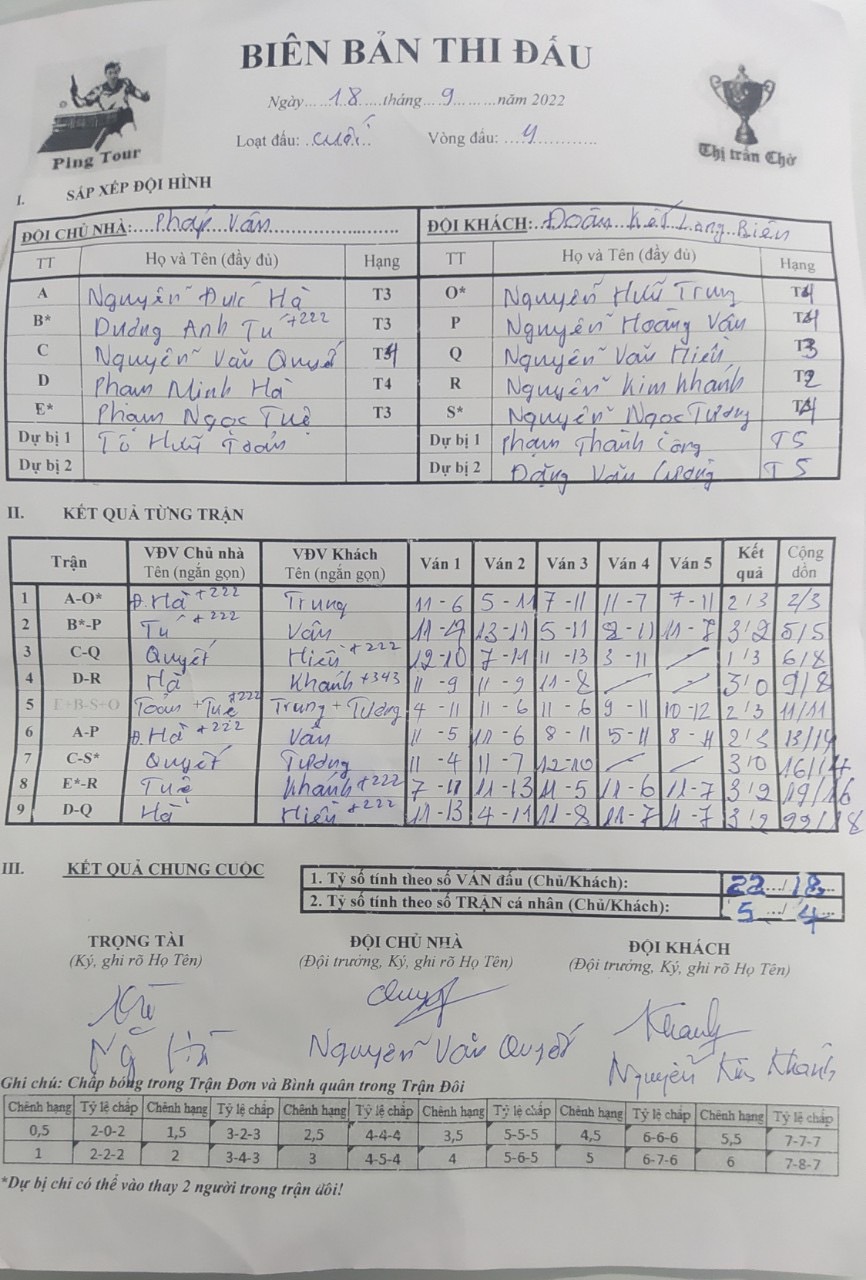 BIÊN BẢN THI ĐẤU
Ping Tour
Thị trấn Chờ
Ngày.....18.....tháng...9.........năm 2022
Loạt đấu: cuối Vòng đấu: ...4...........
I. SẮP XẾP ĐỘI HÌNH
ĐỘI CHỦ NHÀ: Pháp Vân ĐỘI KHÁCH: Đoàn Kết Long Biên
TT Họ và Tên (đầy đủ) Hạng TT Họ và Tên (đầy đủ) Hạng
A Nguyễn Đức Hà T3 O* Nguyễn Hữu Trung T4
B* Dương Anh Tú +222 T3 P Nguyễn Hoàng Vân T4
C Nguyễn Văn Quyết T4 Q Nguyễn Văn Hiển T3
D Phạm Minh Hà T4 R Nguyễn Kim Khánh T2
E* Phạm Ngọc Tuệ T3 S* Nguyễn Ngọc Tương T4
Dự bị 1 Tô Hữu Toản Dự bị 1 Phạm Thành Công T5
Dự bị 2 Đặng Văn Cường T5
II. KẾT QUẢ TỪNG TRẬN
Trận VĐV Chủ nhà Tên (ngắn gọn) VĐV Khách Tên (ngắn gọn) Ván 1 Ván 2 Ván 3 Ván 4 Ván 5 Kết quả Cộng dồn
1 A-O* Đ.Hà +222 Trung 11-6 5-11 7-11 11-7 7-11 2/3 2/3
2 B*-P Tú +222 Vân 13-11 5-11 11-7 3/2 5/5
3 C-Q Quyết Hiển +222 12-10 7-11 11-13 3-11 1/3 6/8
4 D-R Hà Khánh +343 11-9 11-9 11-8 3/0 9/8
5 E+B-S+O Toản + Tuệ +222 Trung + Tương 4-11 11-6 11-6 9-11 10-12 2/3 11/11
6 A-P Đ.Hà +222 Vân 11-5 11-6 8-11 5-11 8-11 2/3 13/14
7 C-S* Quyết Tương 11-4 11-7 12-10 3/0 16/14
8 E*-R Tuệ Khánh +222 7-11 11-13 11-5 11-6 11-7 3/2 19/16
9 D-Q Hà Hiển +222 11-13 4-11 11-8 11-7 11-7 3/2 22/18
III. KẾT QUẢ CHUNG CUỘC
1. Tỷ số tính theo số VÁN đấu (Chủ/Khách): 22.../18...
2. Tỷ số tính theo số TRẬN cá nhân (Chủ/Khách): 5.../4...
TRỌNG TÀI ĐỘI CHỦ NHÀ ĐỘI KHÁCH
(Ký, ghi rõ Họ Tên) (Đội trưởng, Ký, ghi rõ Họ Tên) (Đội trưởng, Ký, ghi rõ Họ Tên)
Quyết Khanh
Nguyễn Văn Quyết Nguyễn Kim Khánh
Ghi chú: Chấp bóng trong Trận Đơn và Bình quân trong Trận Đôi
Chênh hạng Tỷ lệ chấp Chênh hạng Tỷ lệ chấp Chênh hạng Tỷ lệ chấp Chênh hạng Tỷ lệ chấp Chênh hạng Tỷ lệ chấp Chênh hạng Tỷ lệ chấp
0,5 2-0-2 1,5 3-2-3 2,5 4-4-4 3,5 5-5-5 4,5 6-6-6 5,5 7-7-7
1 2-2-2 2 3-4-3 3 4-5-4 4 5-6-5 5 6-7-6 6 7-8-7
*Dự bị chỉ có thể vào thay 2 người trong trận đôi!